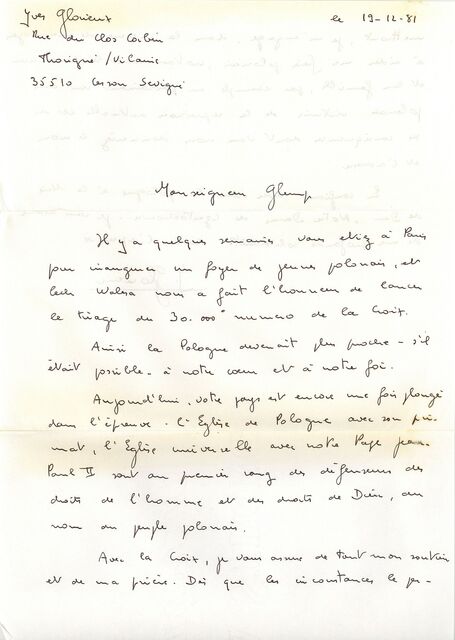 Yves Glorieux le 19-12-81
Rue du Clos Corbin
Thorigné / Vilaine
35510 Cesson Sevigné
Monseigneur Glemp
Il y a quelques semaines vous etiez à Paris
pour inaugurer un foyer de jeunes polonais, et
Lech Walesa nous a fait l'honneur de lancer
le tirage du 30.000° numero de la Croix.
Ainsi la Pologne devenait plus proche - s'il
était possible - à notre cœur et à notre foi.
Aujourd'hui, votre pays est encore une fois plongé
dans l'épreuve. L'Eglise de Pologne avec son pri-
mat, l'Eglise universelle avec notre Pape Jean-
Paul II sont au premier rang des défenseurs des
droits de l'homme et des droits de Dieu, au
nom du peuple polonais.
Avec la Croix, je vous assure de tout mon soutien
et de ma prière. Dès que les circonstances le per-